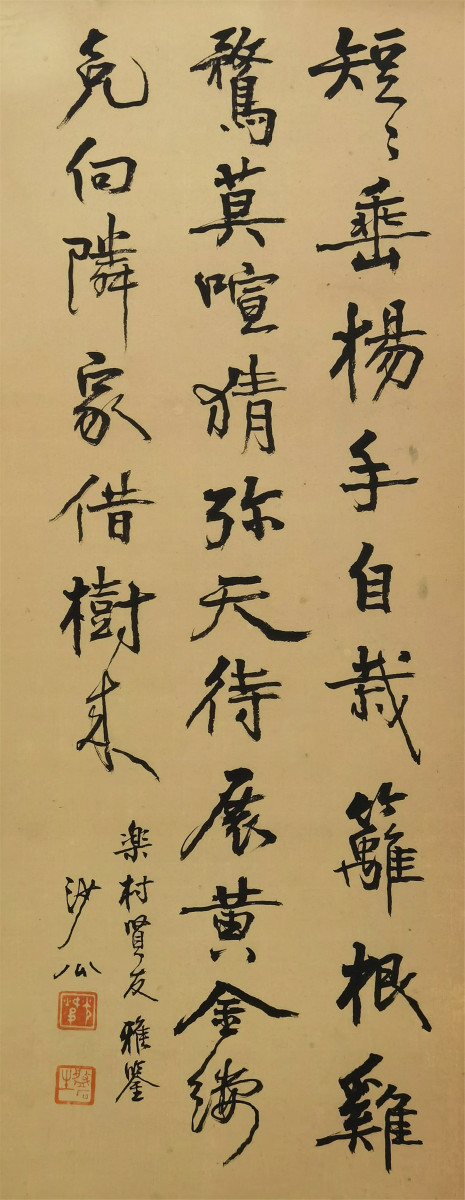 短〻垂楊手自栽籬根雞
鶩莫喧猜弥天待展黃金縷
免向隣家借樹來
楽村賢友雅鑒
沙公